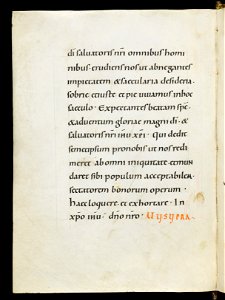 di salvatoris nri omnibus homi
nibus erudiens nos ut abnegantes
impietatem & saecularia desideria.
sobrie et iuste et pie vivamus in hoc
saeculo. Expectantes beatam spē
& adventum gloriae magni di. &
salvatoris nri ihu xpi. Qui dedit
semetipsum pro nobis ut nos redi
meret ab omni iniquitate et mun
daret sibi populum acceptabilem
sectatorem bonorum operum.
Haec loquere et exhortare. In
xpo ihu. dno nro.